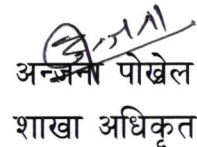 अन्जना पोखेल
शाखा अधिकृत